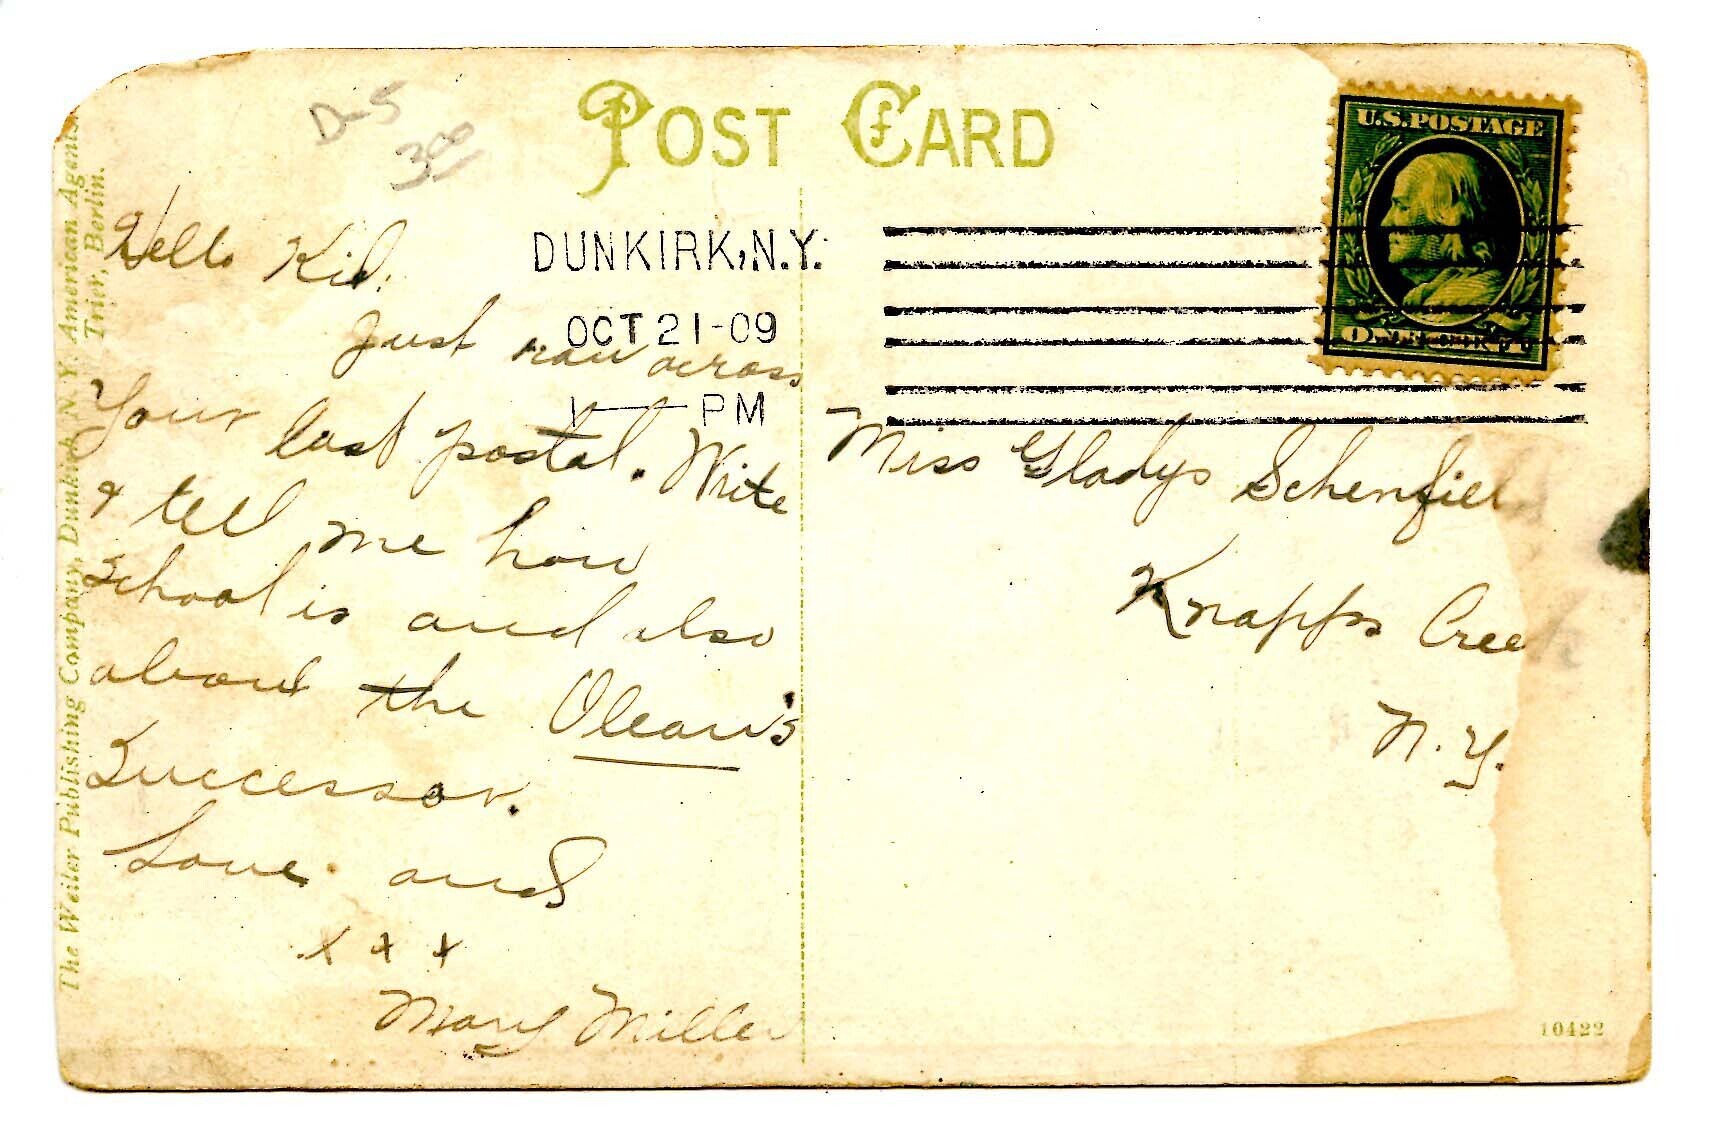 POST CARD
D-5
3.00
U.S. POSTAGE
DUNKIRK, N.Y.
OCT 21-09
1 — PM
Hello Kid.
Just ran across
Your last postal. Write
& tell me how
School is and also
about the Olean's
Successor.
Love and
x x x
Mary Miller
Miss Gladys Schenfield
Knapps Creek
N.Y.
The Weiler Publishing Company, Dunkirk, N. Y. American Agents.
Trier, Berlin.
10422